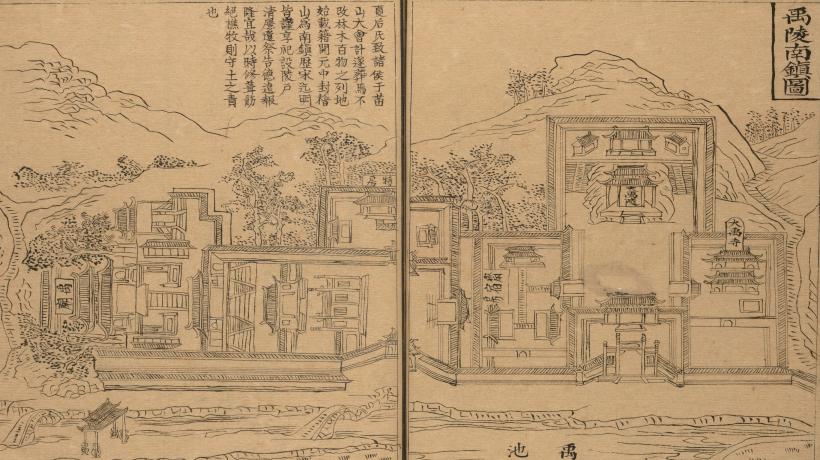 禹陵南鎮圖
夏后氏致諸侯于苗
山大會計遂葬焉不
改林木百物之列地
始載籍開元中封稽
山為南鎮歷宋迄明
皆謹享祀設陵戶
清塵遣祭告德遠報
隆宜哉以時修葺勿
絕樵牧則守土之責
也
大禹寺
齋宿房
禹廟
禹池